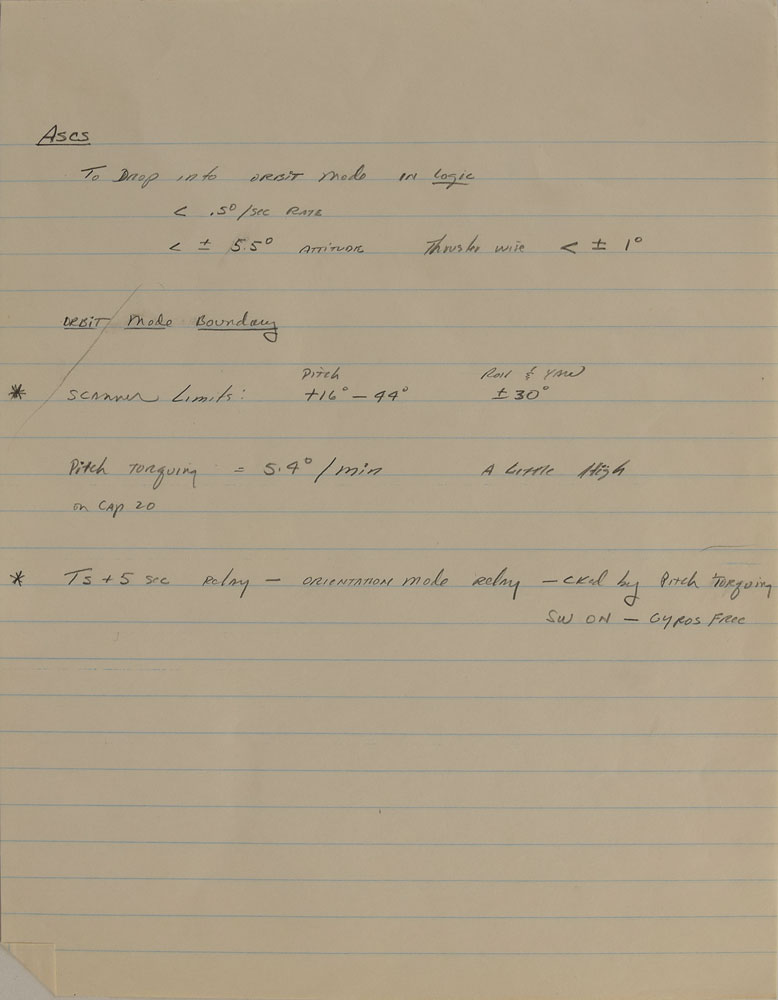 Ascs
To Drop into ORBIT Mode in Logic
< .5°/sec RATE
< ± 5.5° ATTITUDE Thruster wise < ± 1°
ORBIT Mode Boundary
Pitch Roll & YAW
* Scanner Limits: +16° – 44° ± 30°
Pitch TORquing = 5.4°/min A Little High
on CAP 20
* Ts + 5 sec Relay — ORIENTATION mode Relay — cked by Pitch Torquing
SW ON — Gyros Free